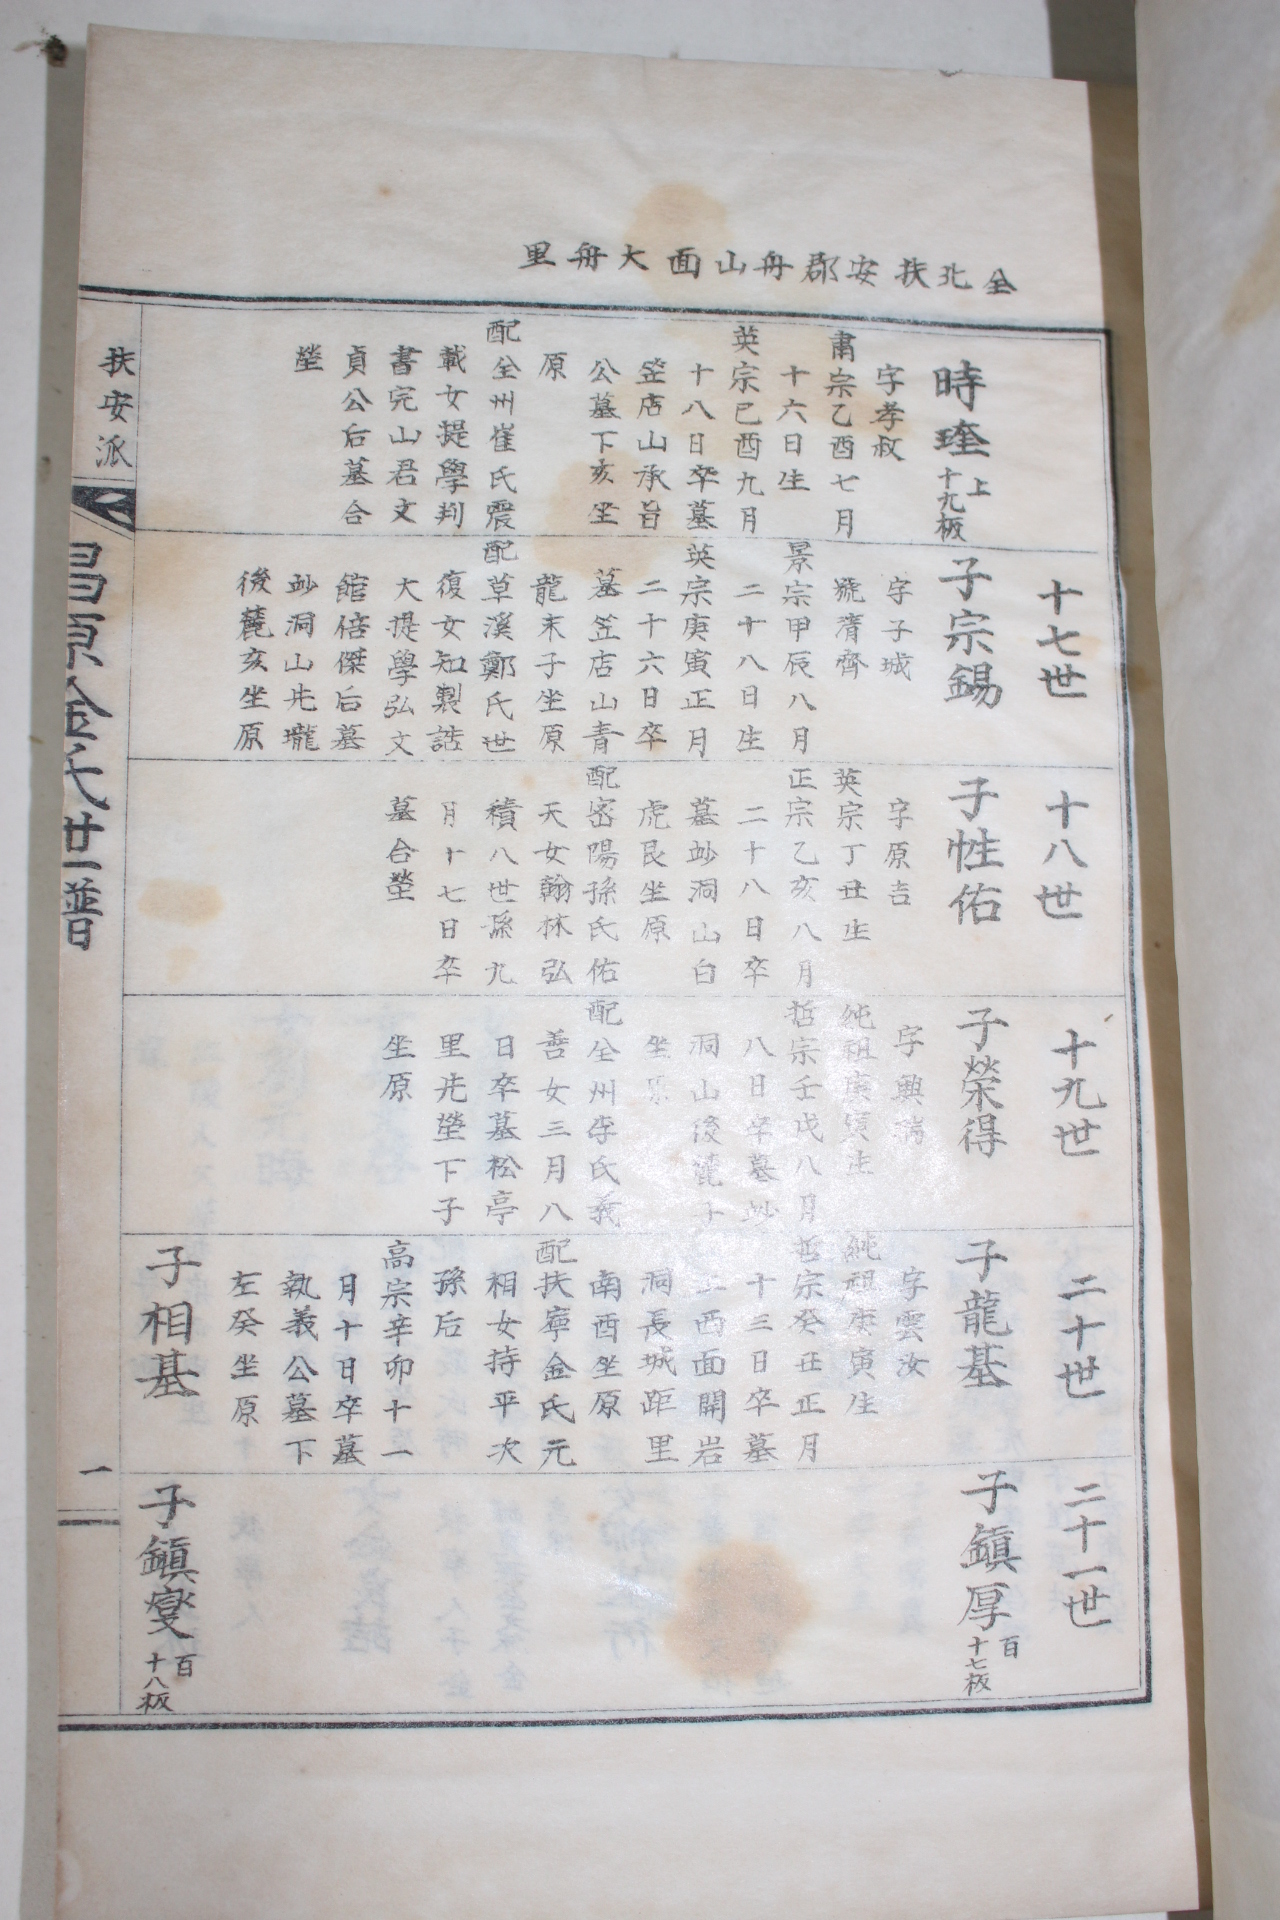 全北扶安郡舟山面大舟里
時㻶
上
十九板
字孝叔
肅宗乙酉七月
十六日生
英宗己酉九月
十八日卒墓
笠店山承旨
公墓下亥坐
原
配全州崔氏震
載女提學判
書完山君文
貞公后墓合
塋
十七世
子宗錫
字子城
號濟齊
景宗甲辰八月
二十八日生
英宗庚寅正月
二十六日卒
墓笠店山青
龍末子坐原
配草溪鄭氏世
復女知製誥
大提學弘文
館倍傑后墓
妙洞山先壠
後麓亥坐原
十八世
子性佑
字原吉
英宗丁丑生
正宗乙亥八月
二十八日卒
墓妙洞山白
虎艮坐原
配密陽孫氏佑
天女翰林弘
積八世孫九
月十七日卒
墓合塋
十九世
子榮得
字興
純祖庚寅生
哲宗壬戌八月
八日卒墓妙
洞山後麓子
坐原
配全州李氏義
善女三月八
日卒墓松亭
里先塋下子
坐原
二十世
子龍基
字雲汝
純祖庚寅生
哲宗癸丑正月
十三日卒墓
二西面開岩
洞長城距里
南酉坐原
配扶寧金氏元
相女持平次
孫后
高宗辛卯十一
月十日卒墓
執義公墓下
左癸坐原
子相基
二十一世
子鎭厚
百
十七板
子鎭燮
百
十八板
扶安派
昌原金氏世譜
一